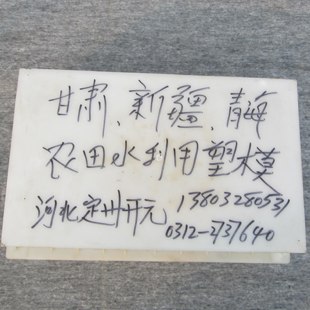 甘肃、新疆、青海
农田水利用塑模
河北定州开元 13803280531
0312-2737640